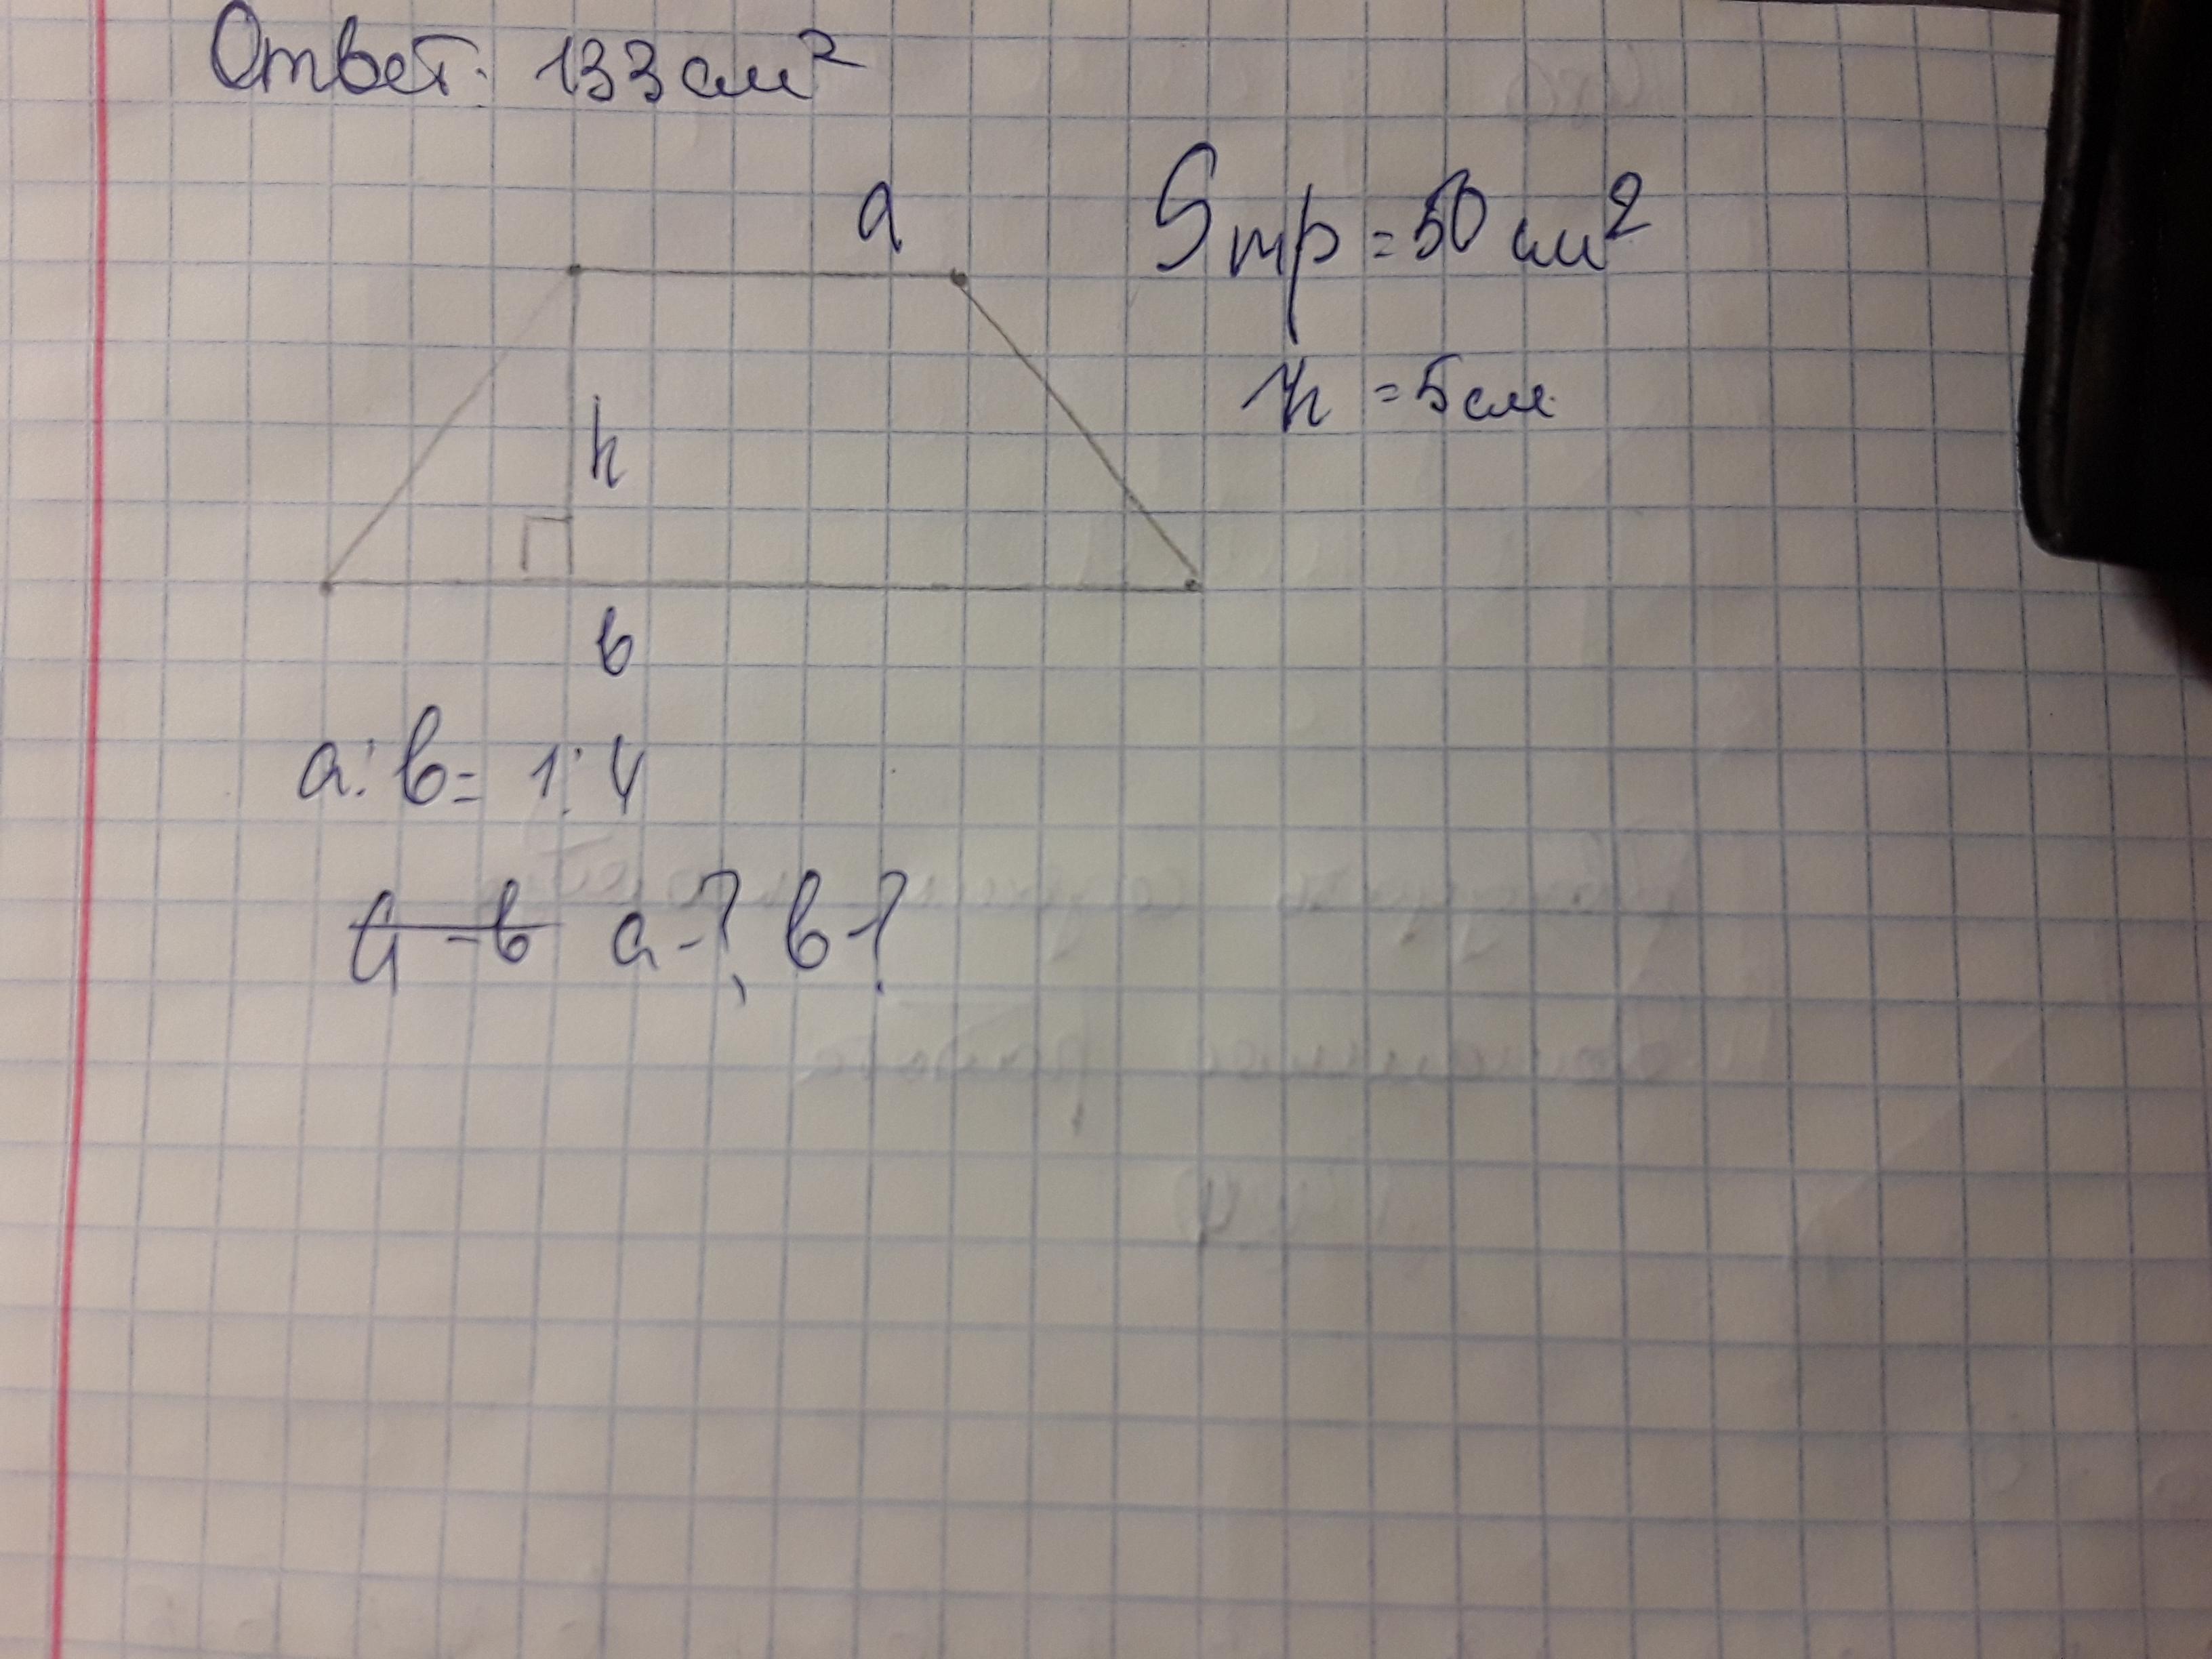 Ответ: 133 см²
a
Sтр = 50 см²
h = 5 см.
h
b
a : b = 1 : 4
a - b a - ?, b - ?